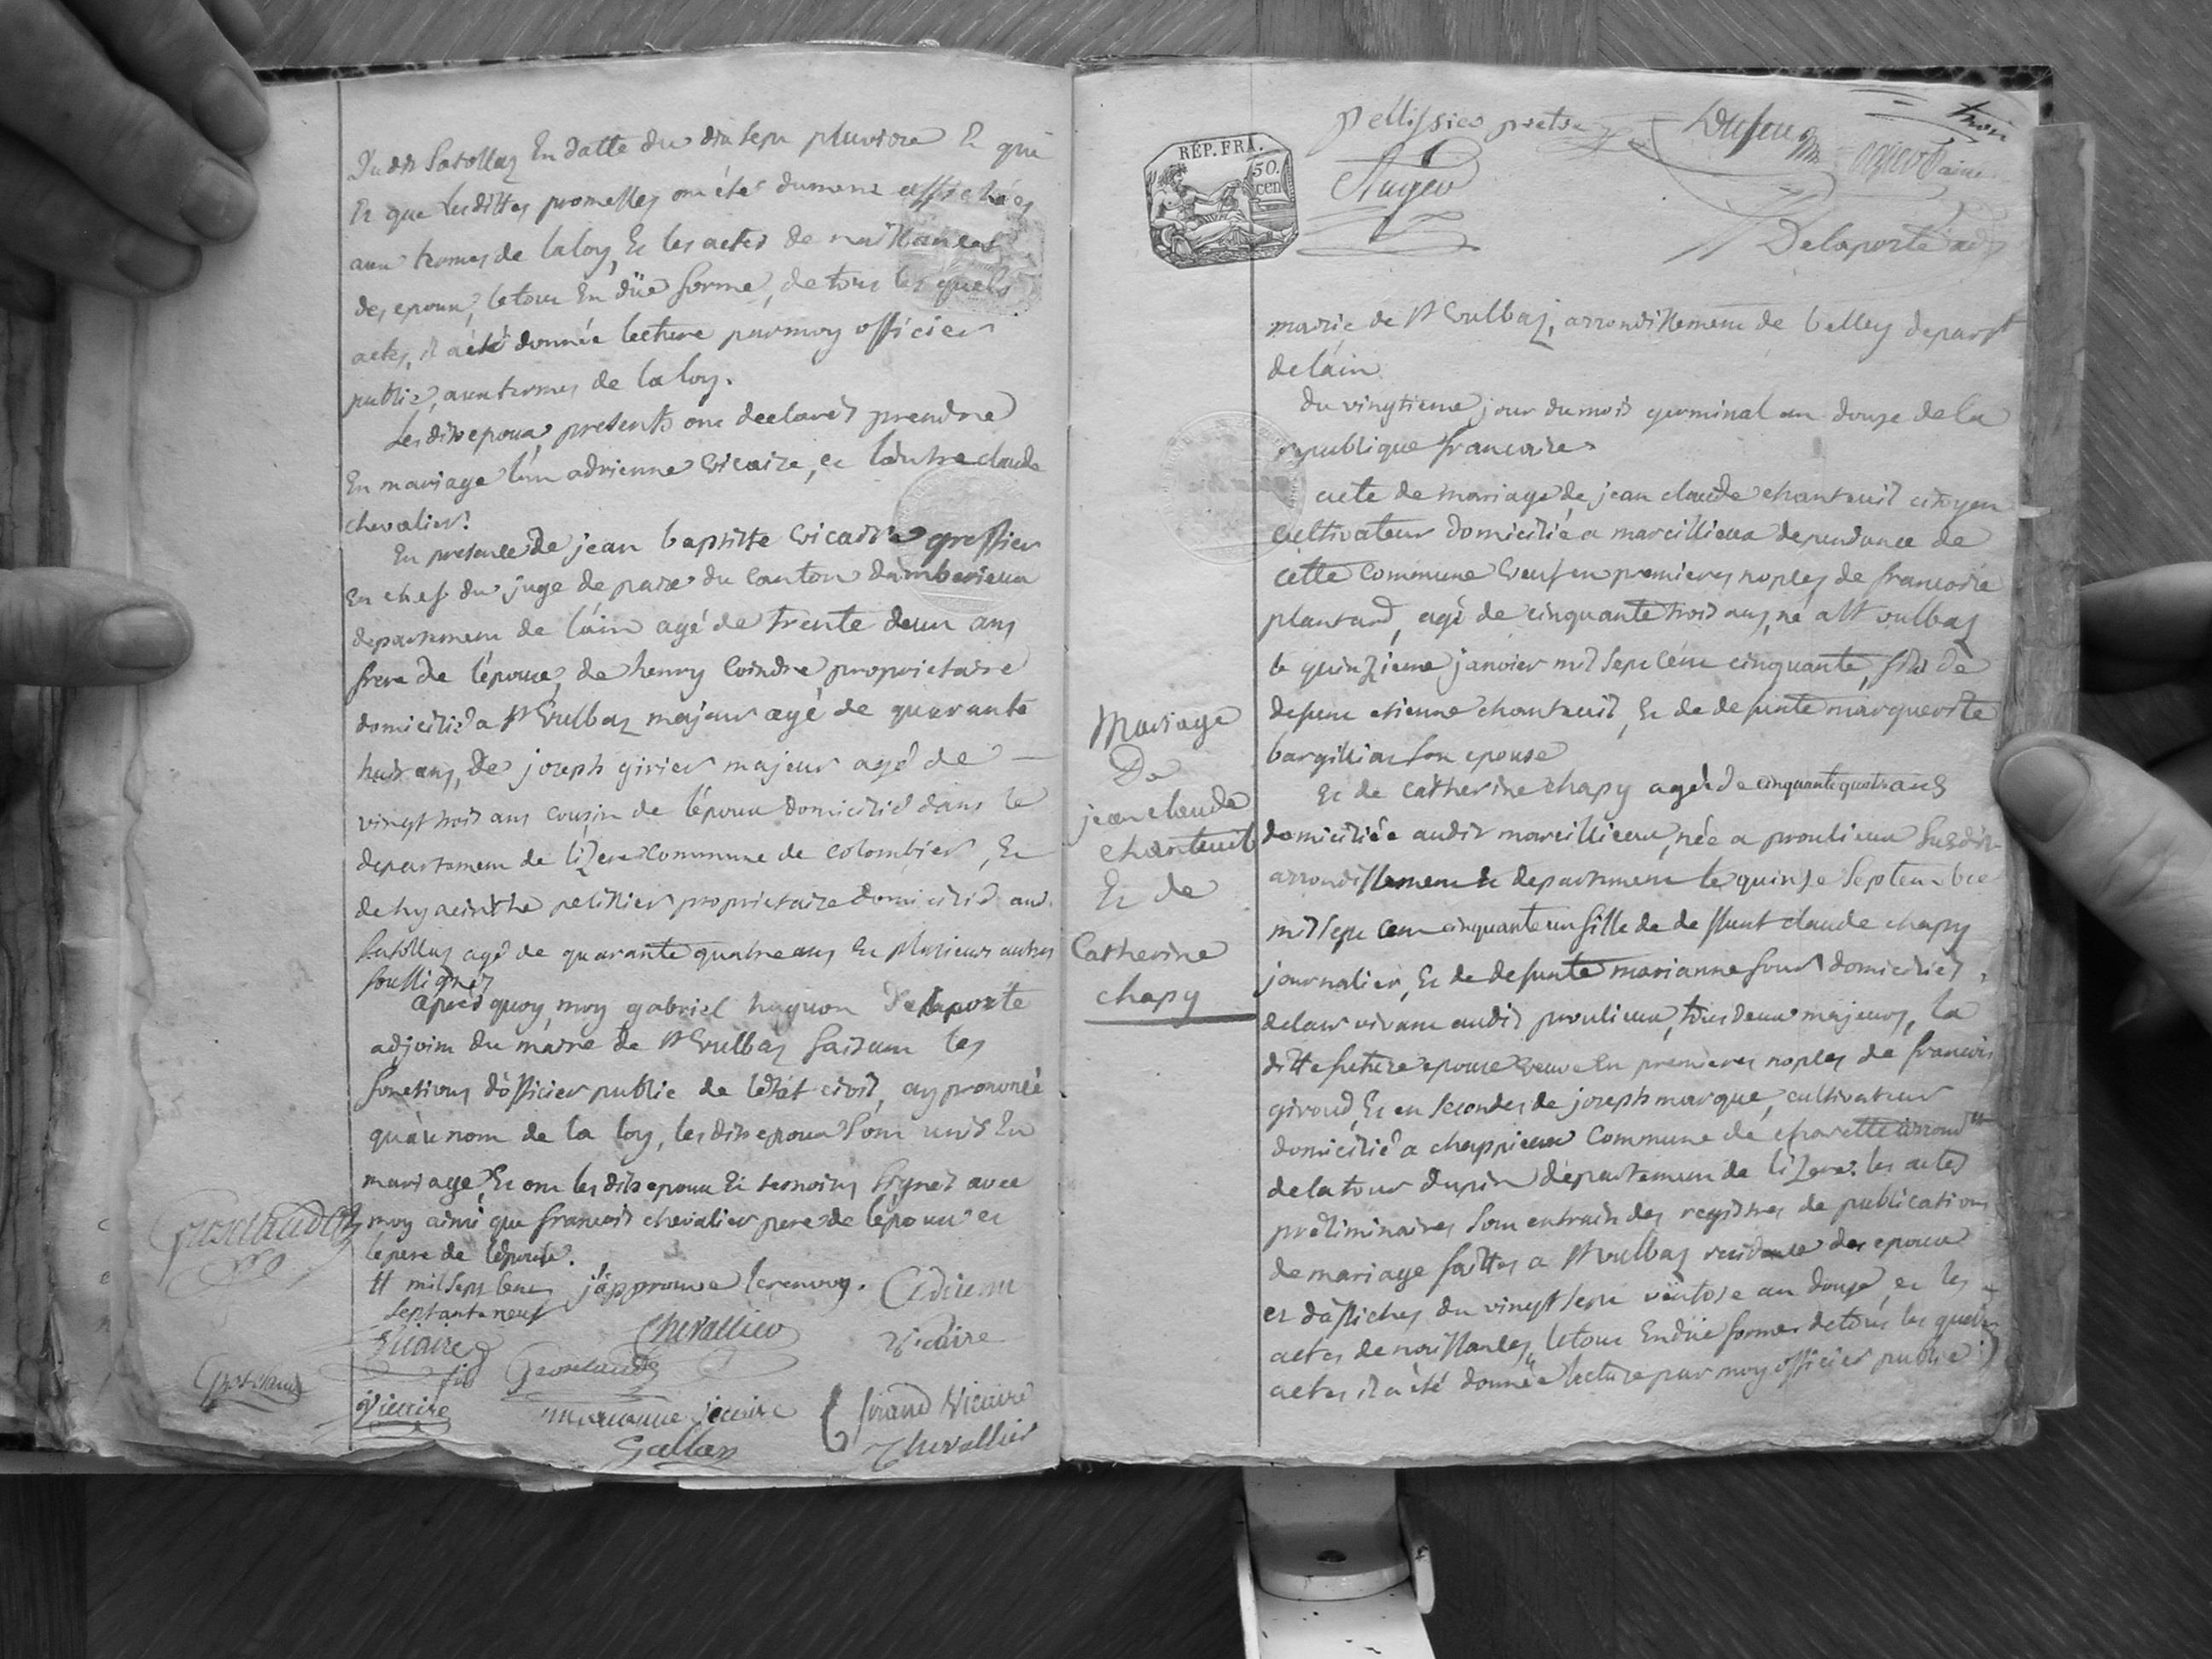 Dudit Satollaz En datte du dix sept pluviose Et qui
Et que Lesdittes promesses ont étés dument affichées
aux termes de la loy, Et les actes de naissances
des epoux, le tout En düe forme, de tous les quels
actes, il a été donnée lecture par moy officier
public, aux termes de la loy.
Lesdits epoux presents ont declarés prendre
En mariage l'un adrienne vicaire, et l'autre claude
chevalier.
En presence de jean baptiste vicaire greffier
En chef du juge de paix du canton d'amberieux
departement de l'ain agé de trente deux ans
frere de l'épouse, de henry Coindre, proprietaire
domicilié a St Vulbaz majeur agé de quarante
huit ans, de joseph girier majeur agé de
vingt trois ans cousin de l'époux domicilié dans le
departement de l'izere commune de colombier, Et
de hyacinthe pelissier proprietaire domicilié aud.
Satollaz agé de quarante quatre ans Et plusieurs autres
soussignés
après quoy, moy gabriel huguon Delaporte
adjoint du maire de St Vulbaz faisant les
fonctions d'officier public de l'état civil, ay prononcé
qu'au nom de la loy, lesdits epoux sont unis En
mariage, Et ont lesdits epoux Et temoins signés avec
moy ainsi que francois chevalier pere de l'époux et
le pere de l'épouse.
tt mil sept cent j'approuve le renvoy.
septante neuf
Chevallier
Vicaire
Vicaire
fils
Vicaire
marianne vicaire
Giraud Vicaire
Gallan
Chevallier
REP. FRA.
50.
cen
Pellissier pretre
Auger
Dufour
Delaporte adj
trois
mairie de St Vulbaz, arrondissement de belley depart
de l'ain
du vingtieme jour du mois germinal an douze de la
republique francaise
acte de mariage de jean claude chanteuil citoyen
cultivateur domicilié a marcillieux dependance de
cette commune veuf en premieres noples de francoise
plantard, agé de cinquante trois ans, né a St vulbaz
le quinzieme janvier mil sept cent cinquante, fils de
defunt etienne chanteuil, Et de defunte marguerite
bargilliat son epouse
Et de catherine chapy agée de cinquante quatre ans
domiciliée audit marcillieux, née a proulieux susdit
arrondissement et departement le quinze septembre
mil sept cent cinquante un fille de deffunt claude chapy
journalier, Et de defunte marianne four domiciliés
de leur vivant audit proulieux, tous deux majeurs, la
ditte future epouse veuve En premieres noples de francois
giroud, Et en secondes de joseph marque, cultivateur
domicilié a chappieux commune de charette arrond tt
de la tour dupin departement de l'izere. les actes
préliminaires sont extraits des registres de publications
de mariage faittes a St vulbaz residence des epoux
et d'affiches du vingt sept ventose an douze, et les
actes de naissances, le tout En düe forme de tous les quels
actes il a été donnée lecture par moy officier public
Mariage
De
jean claude
chanteuil
Et de
Catherine
chapy